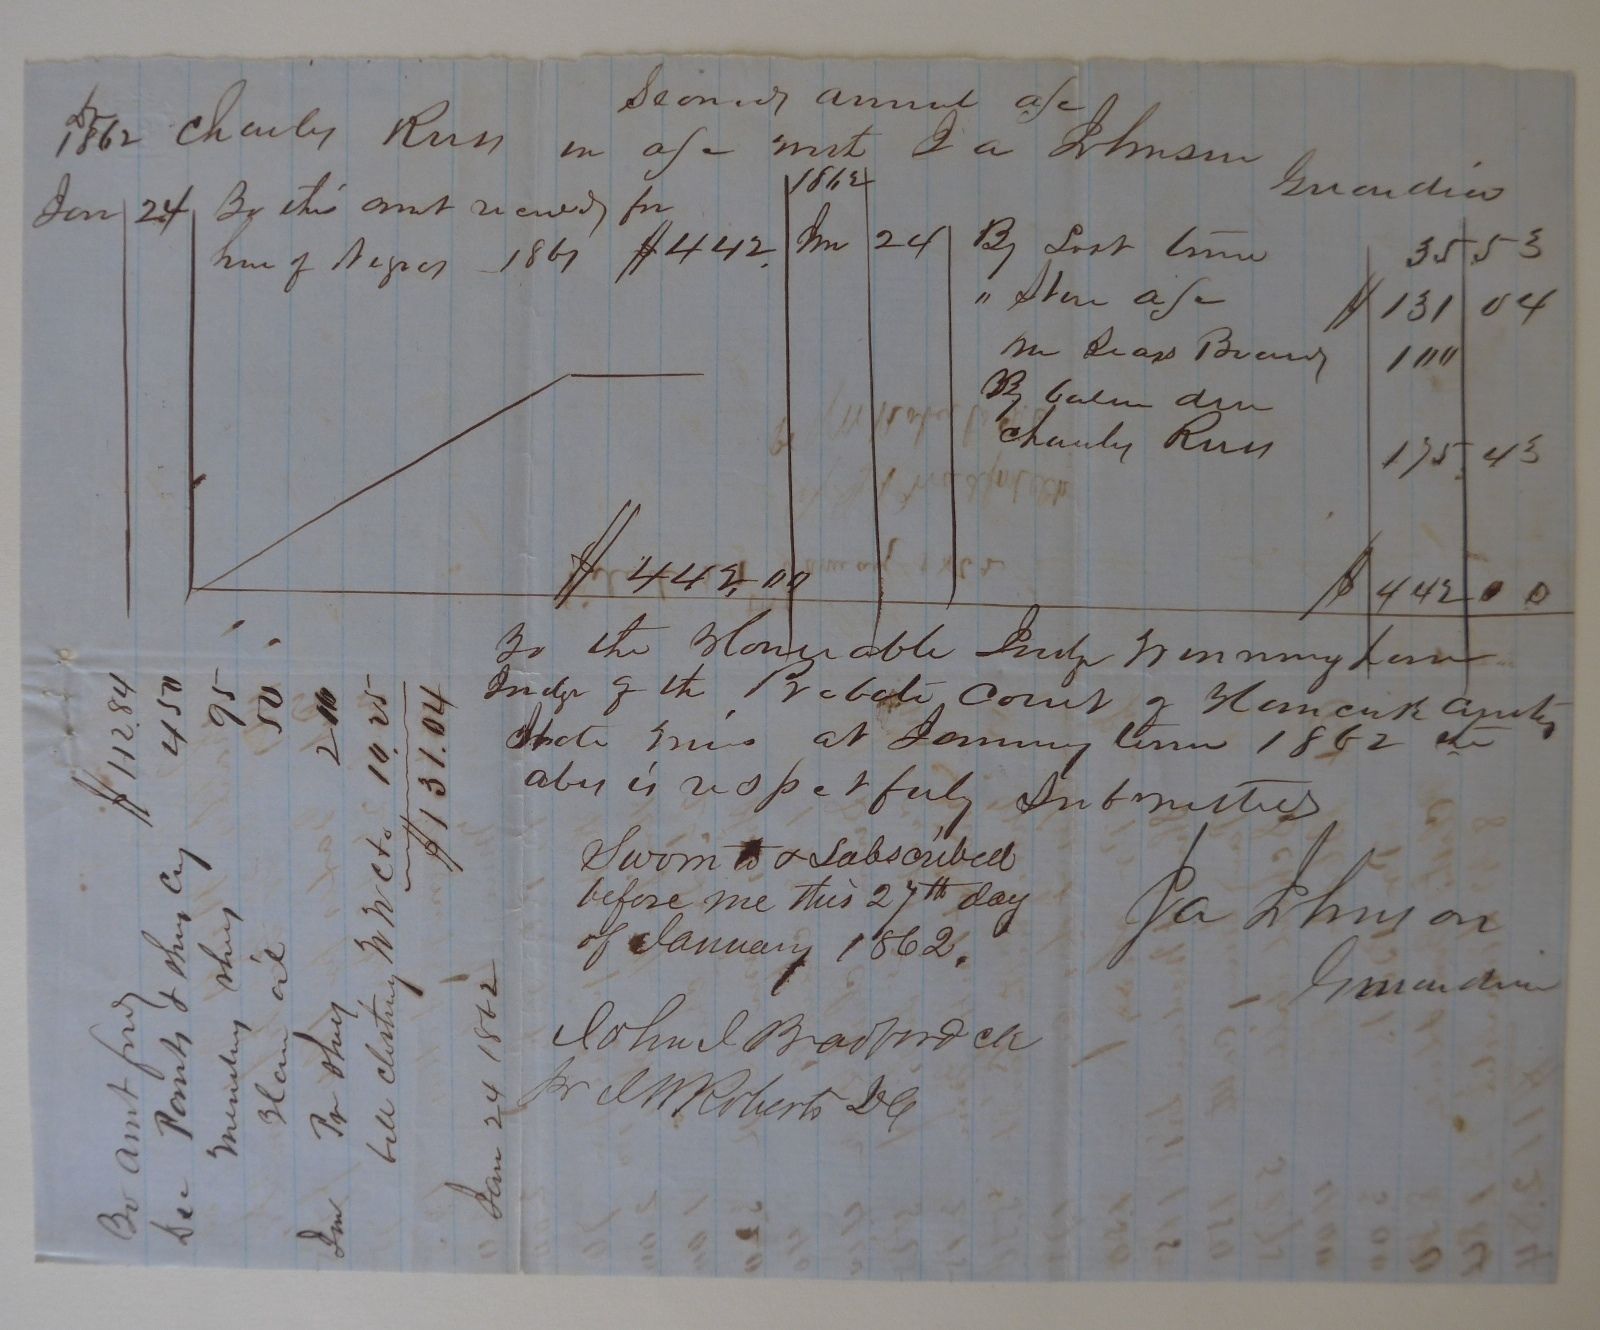 Second annul a/c
Dr
1862 Charley Russ in a/c with J a Johnson
Guardian
Jan 24 To this amt received for
hire of Negroes 1861 $442.
1862
Jan 24 By Lost time 35 53
" Store a/c $131 04
Board 100
By balance due
Charley Russ 175.43
$442.00
$442 00
To the Honerable Judge
Judge of the Probate Court of Hancock County
State Miss at January term 1862 the
abov is respetfuly Submitted
Ja Johnson
Guardian
Sworn to & Subscribed
before me this 27th day
of January 1862.
John J Bradford Clk
pr J W Roberts DC
To amt ford $112.84
Dec Pants & Shoes 4 50
Mending Shoes 95
50
Jan Pr Shoes 2 00
bill 10.25
$131.04
Jan 24 1862